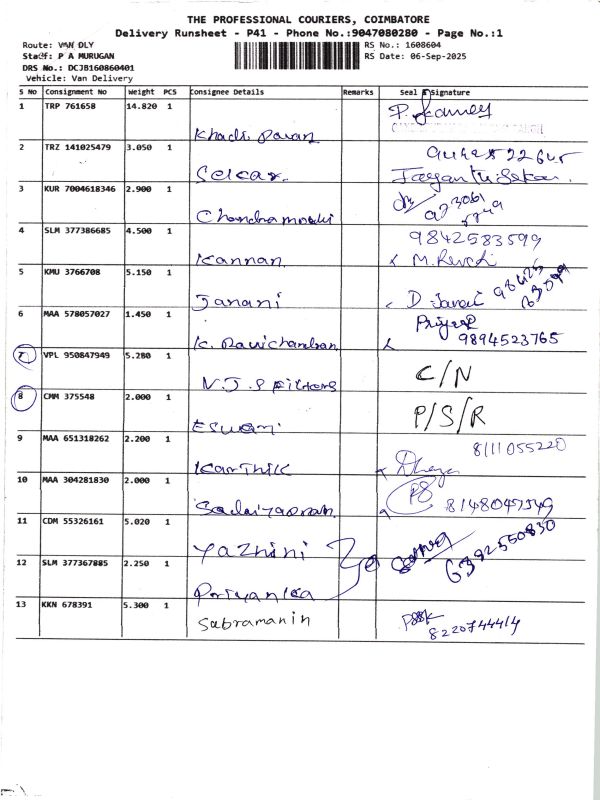 THE PROFESSIONAL COURIERS, COIMBATORE
Delivery Runsheet - P41 - Phone No.:9047080280 - Page No.:1
Route: VAN DLY
Staff: P A MURUGAN
DRS No.: DCJB160860401
Vehicle: Van Delivery
RS No.: 1608604
RS Date: 06-Sep-2025
S No Consignment No Weight PCS Consignee Details Remarks Seal & Signature
1 TRP 761658 14.820 1
2 TRZ 141025479 3.050 1 Selcar.
3 KUR 7004618346 2.900 1
4 SLM 377386685 4.500 1 Kannan 9842583599
5 KMU 3766708 5.150 1 Janani
6 MAA 578057027 1.450 1 K. Ravichandran 9894523765
7 VPL 950847949 5.280 1 C/N
8 CMM 375548 2.000 1 Eswari P/S/R
9 MAA 651318262 2.200 1 Karthik 8111055220
10 MAA 304281830 2.000 1 8148047549
11 CDM 55326161 5.020 1 Yazhini 6382550830
12 SLM 377367885 2.250 1 Priyanka
13 KKN 678391 5.300 1 Subramanin 8220744414